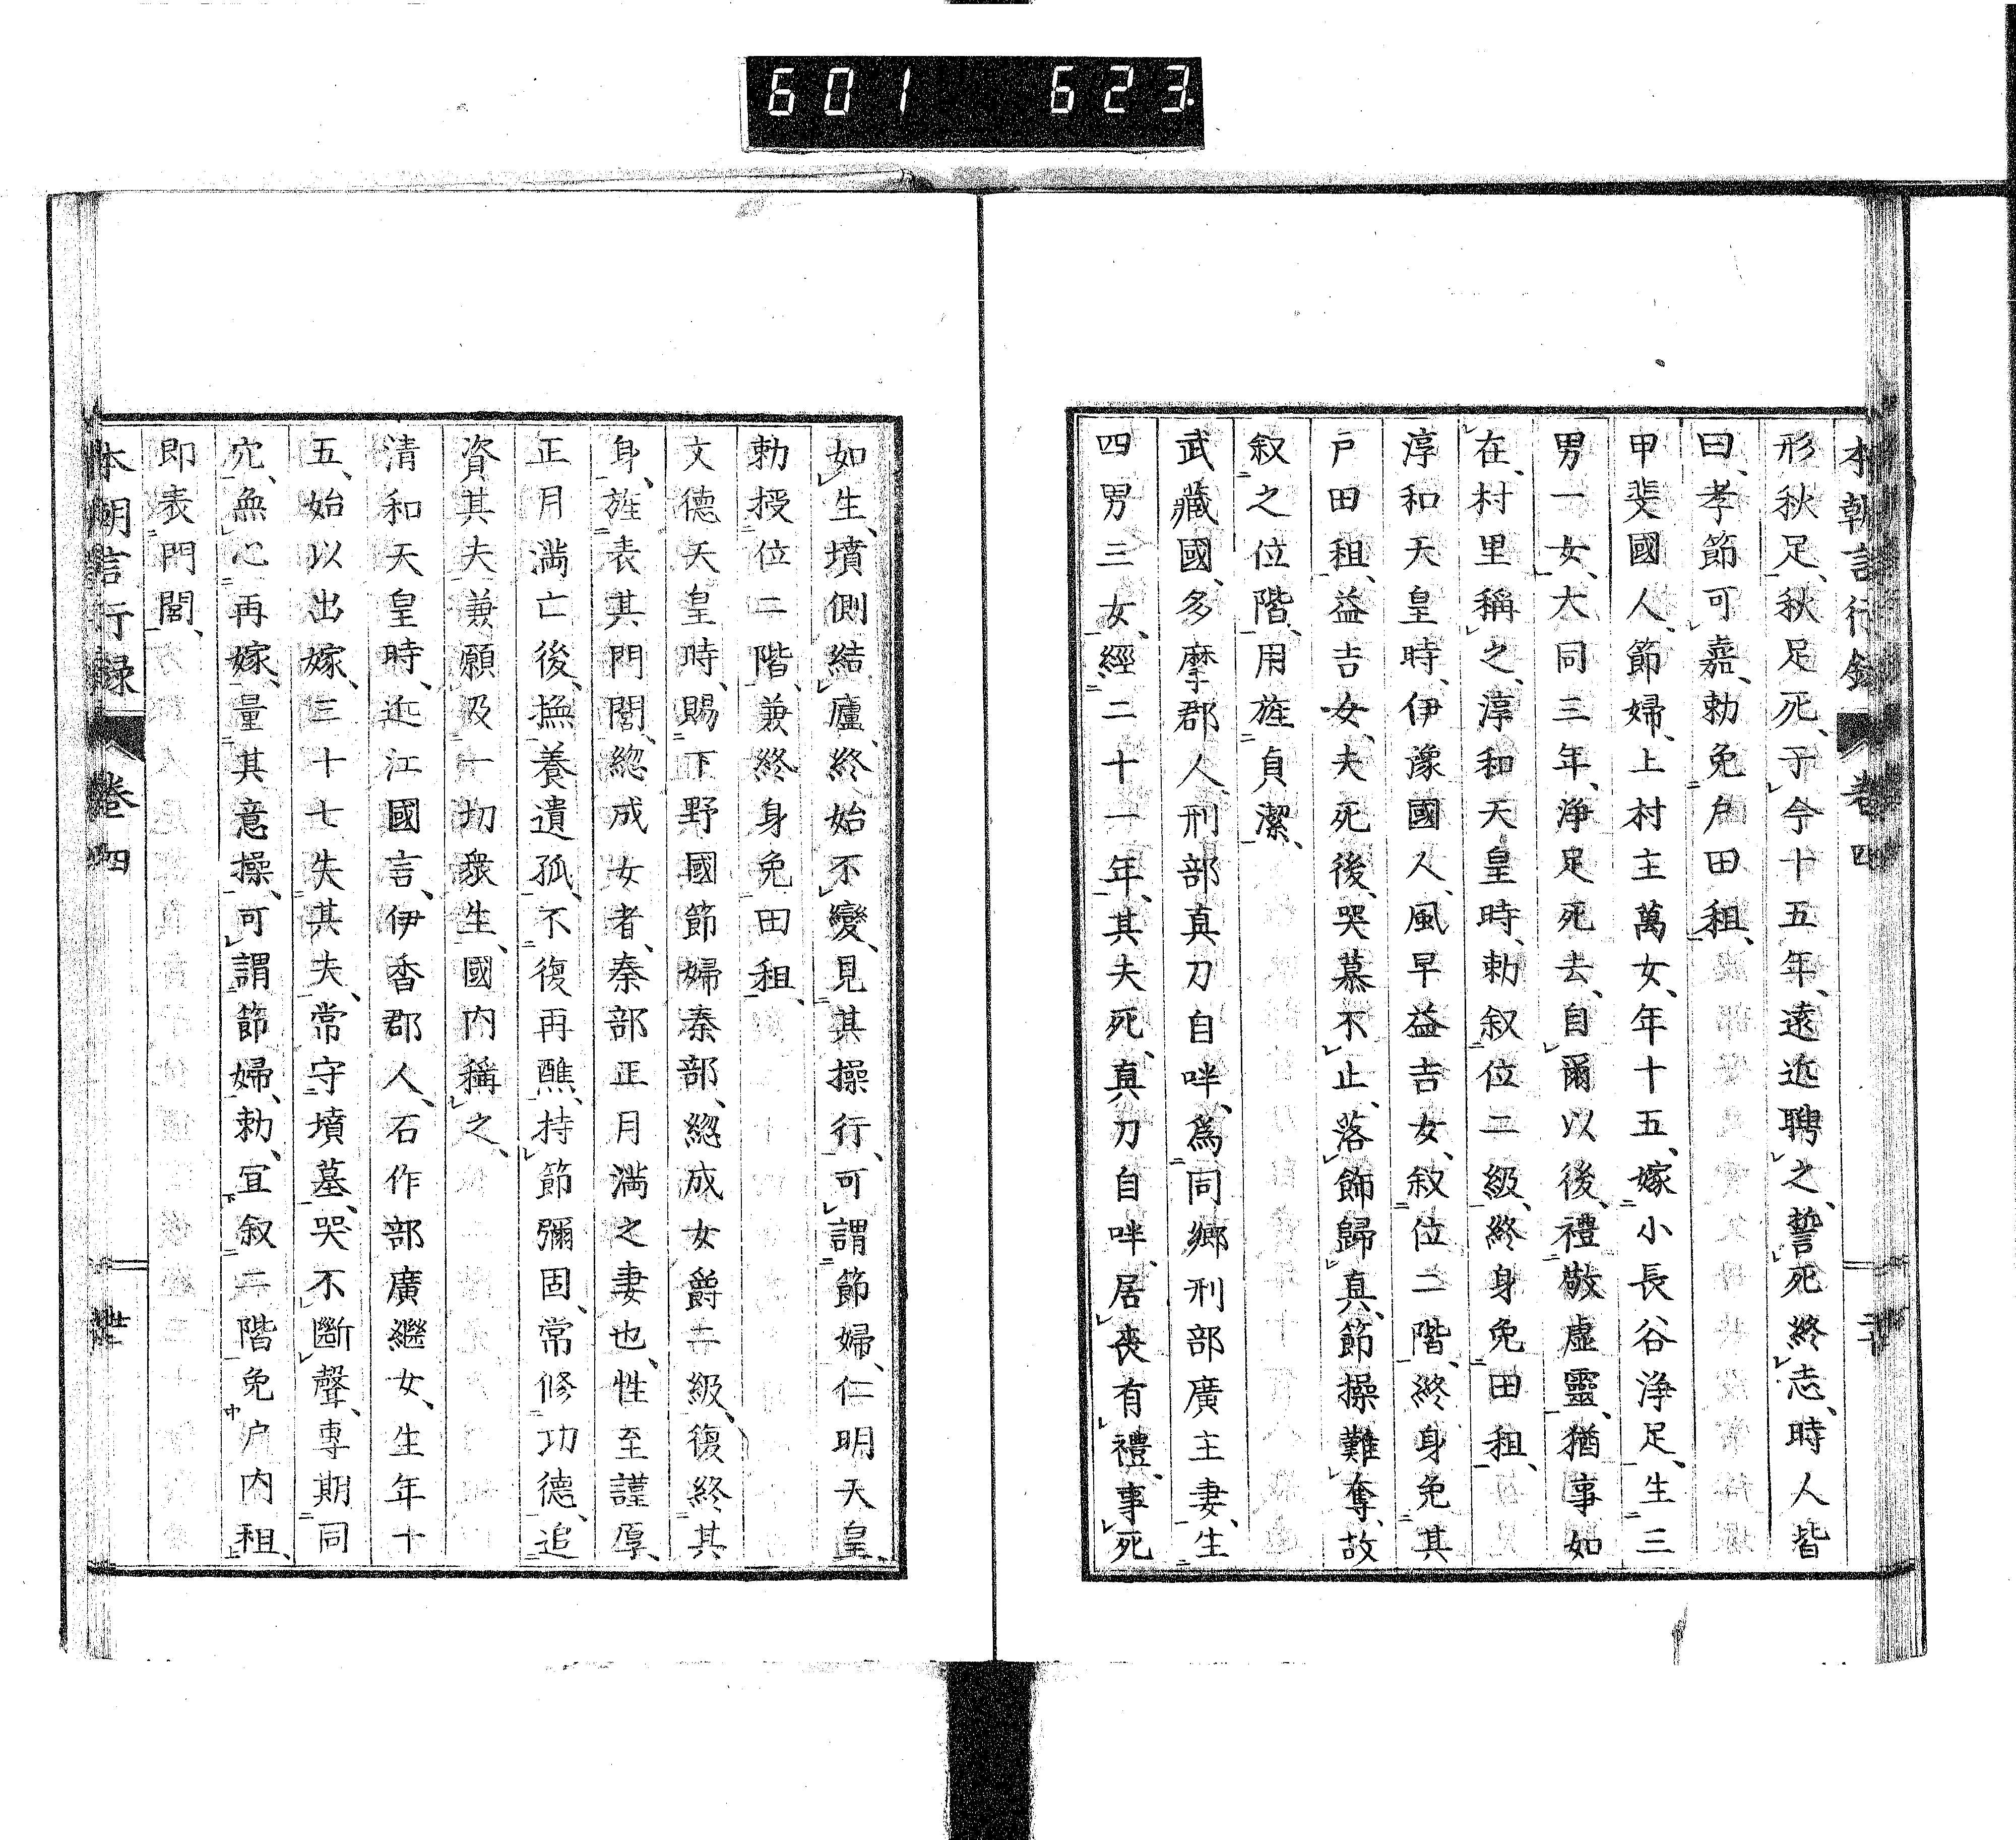 601 623.
本朝言行錄 卷四
形秋足、秋足死、于今十五年、遠近聘之、誓死終志、時人皆
曰、孝節可嘉、勅免戶田租、
甲斐國人、節婦、上村主萬女、年十五、嫁小長谷淨足、生三
男一女、大同三年、淨足死去、自爾以後、禮敬虛靈、猶事如
在、村里稱之、淳和天皇時、勅叙位二級、終身免田租、
淳和天皇時、伊豫國人、風早益吉女、叙位二階、終身免其
戶田租、益吉女、夫死後、哭慕不止、落飾歸真、節操難奪、故
叙之位階、用旌貞潔、
武藏國、多摩郡人、刑部真刀自咩、爲同鄉刑部廣主妻、生
四男三女、經二十一年、其夫死、真刀自咩、居喪有禮、事死
如生、墳側結廬、終始不變、見其操行、可謂節婦、仁明天皇、
勅授位二階、兼終身免田租、
文德天皇時、賜下野國節婦秦部、總成女爵二級、復終其
身、旌表其門閭、總成女者、秦部正月滿之妻也、性至謹厚、
正月滿亡後、撫養遺孤、不復再醮、持節彌固、常修功德、追
資其夫、兼願及一切衆生、國內稱之、
清和天皇時、近江國言、伊香郡人、石作部廣繼女、生年十
五、始以出嫁、三十七失其夫、常守墳墓、哭不斷聲、專期同
穴、無心再嫁、量其意操、可謂節婦、勅、宜叙二階免戶內租、
即表門閭、
本朝言行錄 卷四 丗